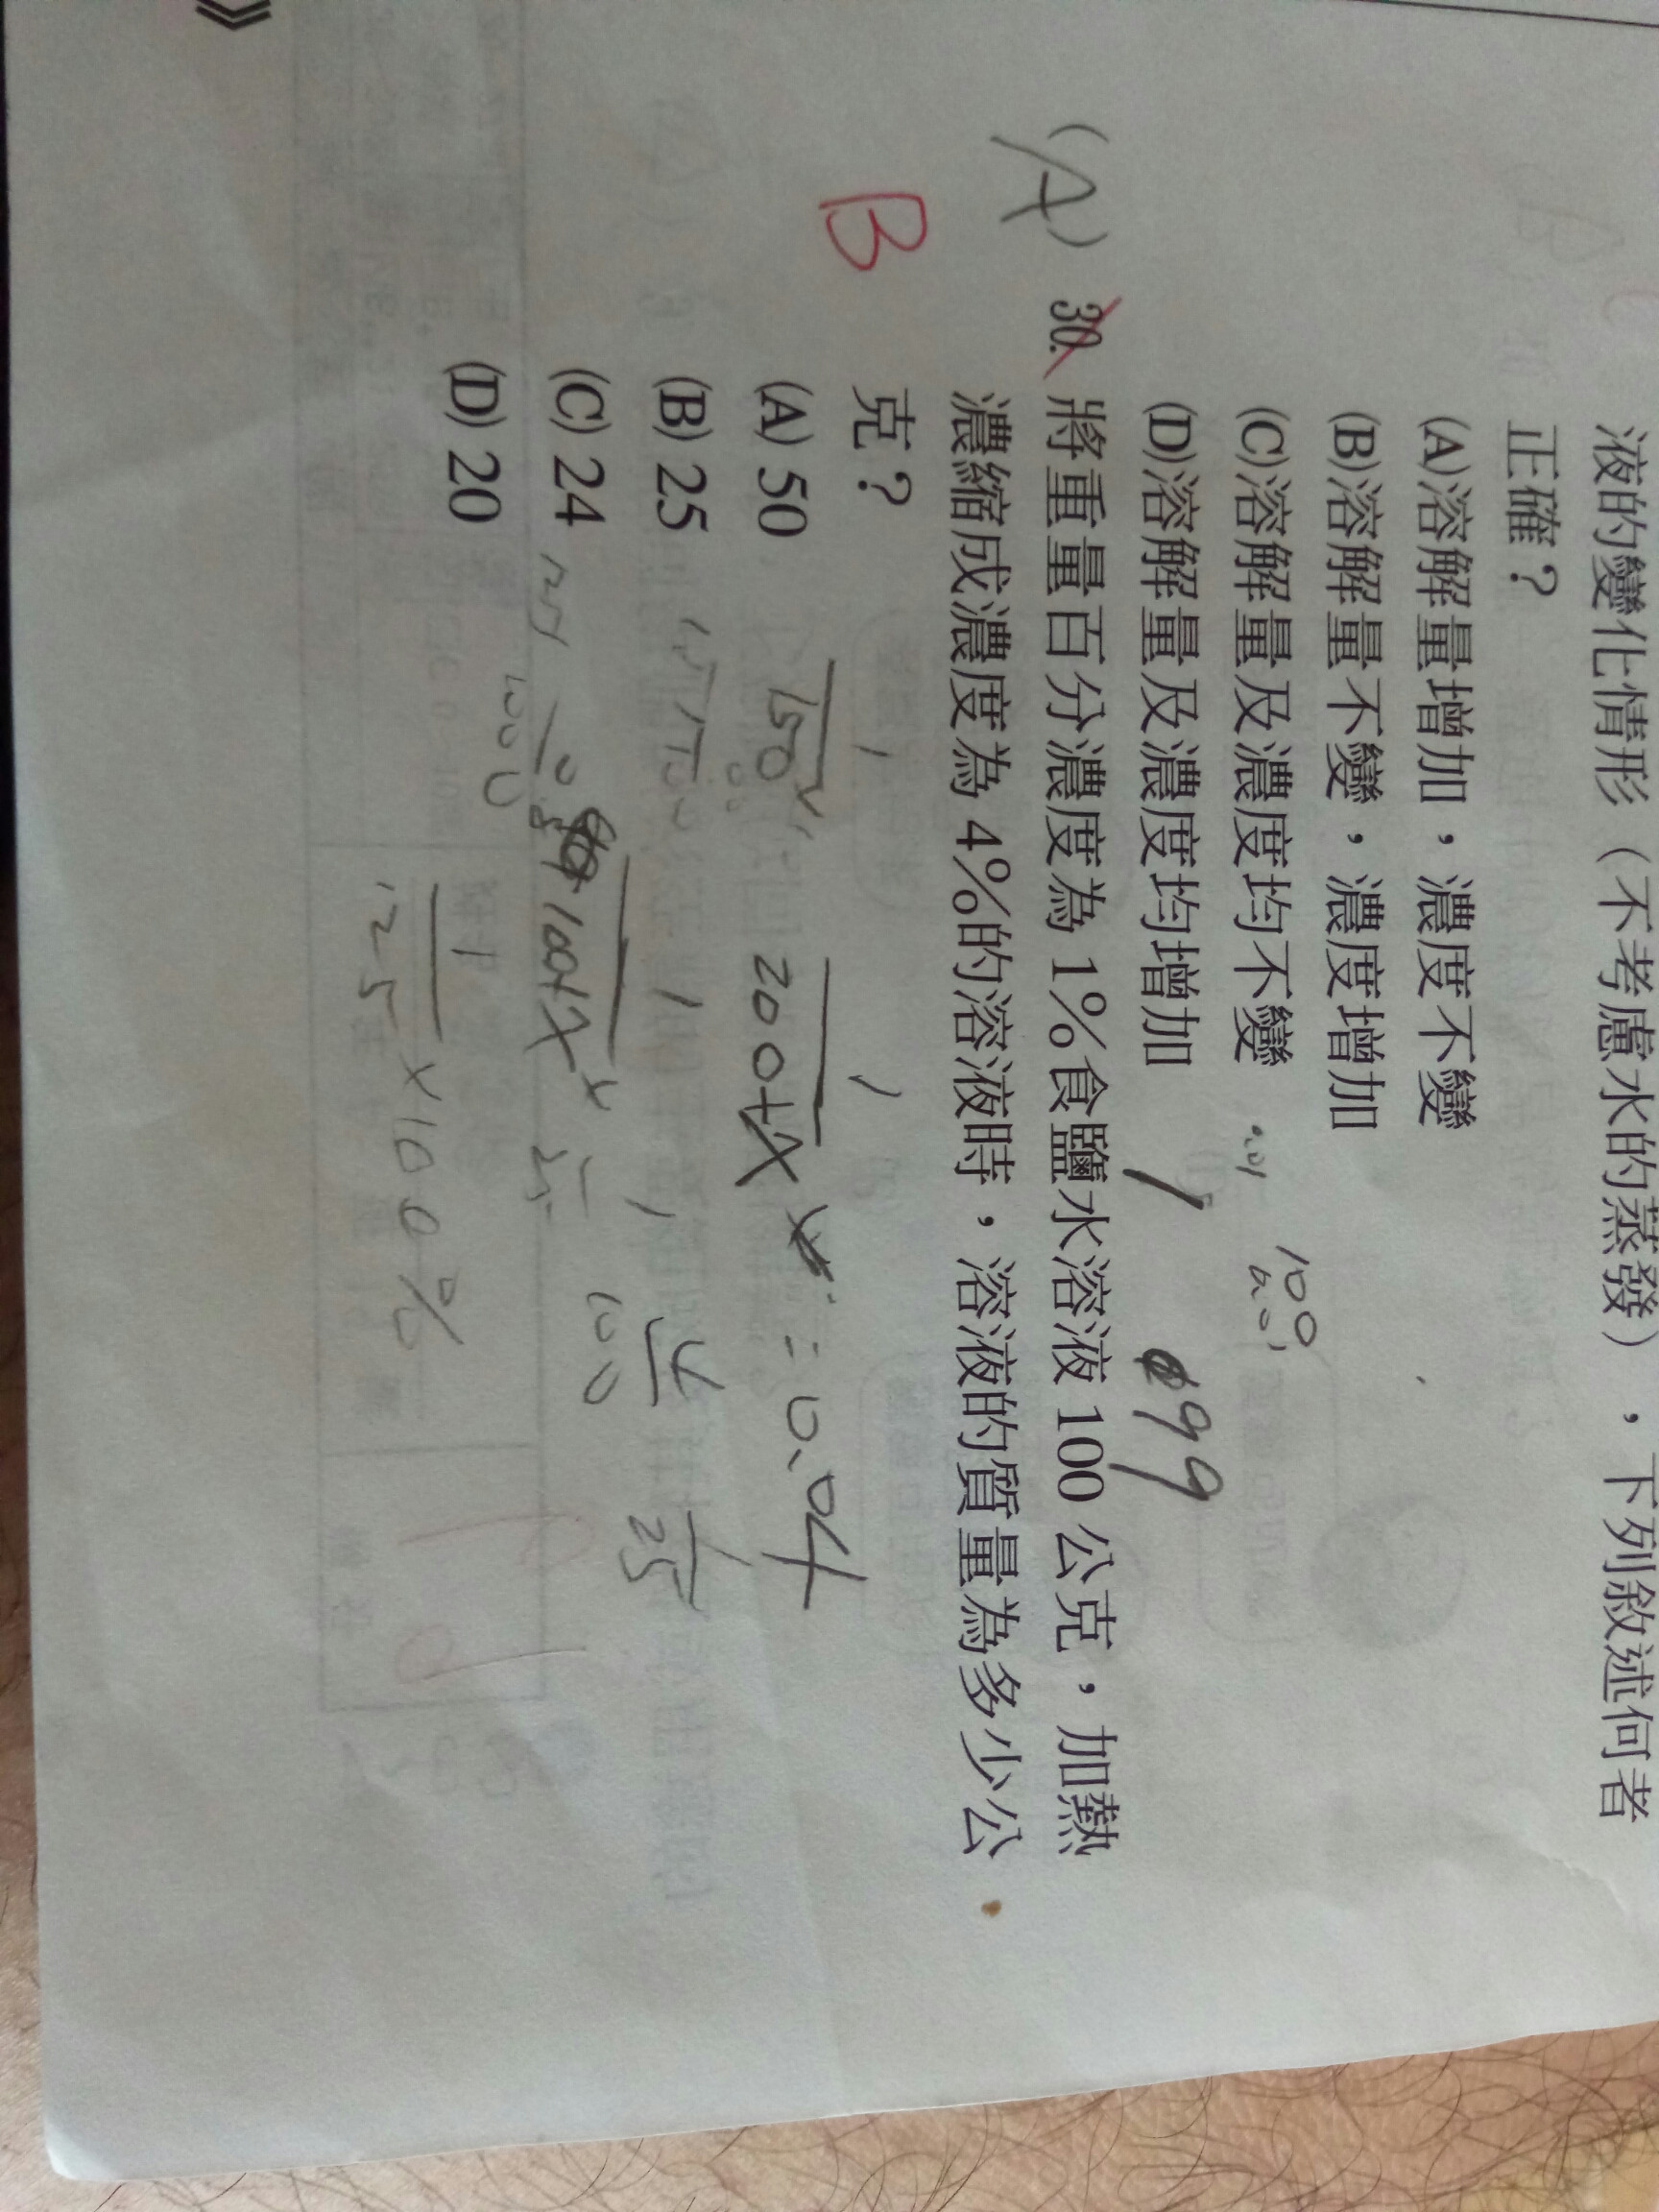 液的變化情形（不考慮水的蒸發），下列敘述何者
正確？
(A)溶解量增加，濃度不變
(B)溶解量不變，濃度增加
(C)溶解量及濃度均不變
(D)溶解量及濃度均增加
0.01
100
1
99
(A) 30. 將重量百分濃度為 1%食鹽水溶液 100 公克，加熱
濃縮成濃度為 4%的溶液時，溶液的質量為多少公
克？
B
(A) 50
(B) 25
(C) 24
(D) 20
1
150
1
200+X
= 0.04
1
100+X
4
100
1
25
1
25
125
100
1
125 ×100%
》